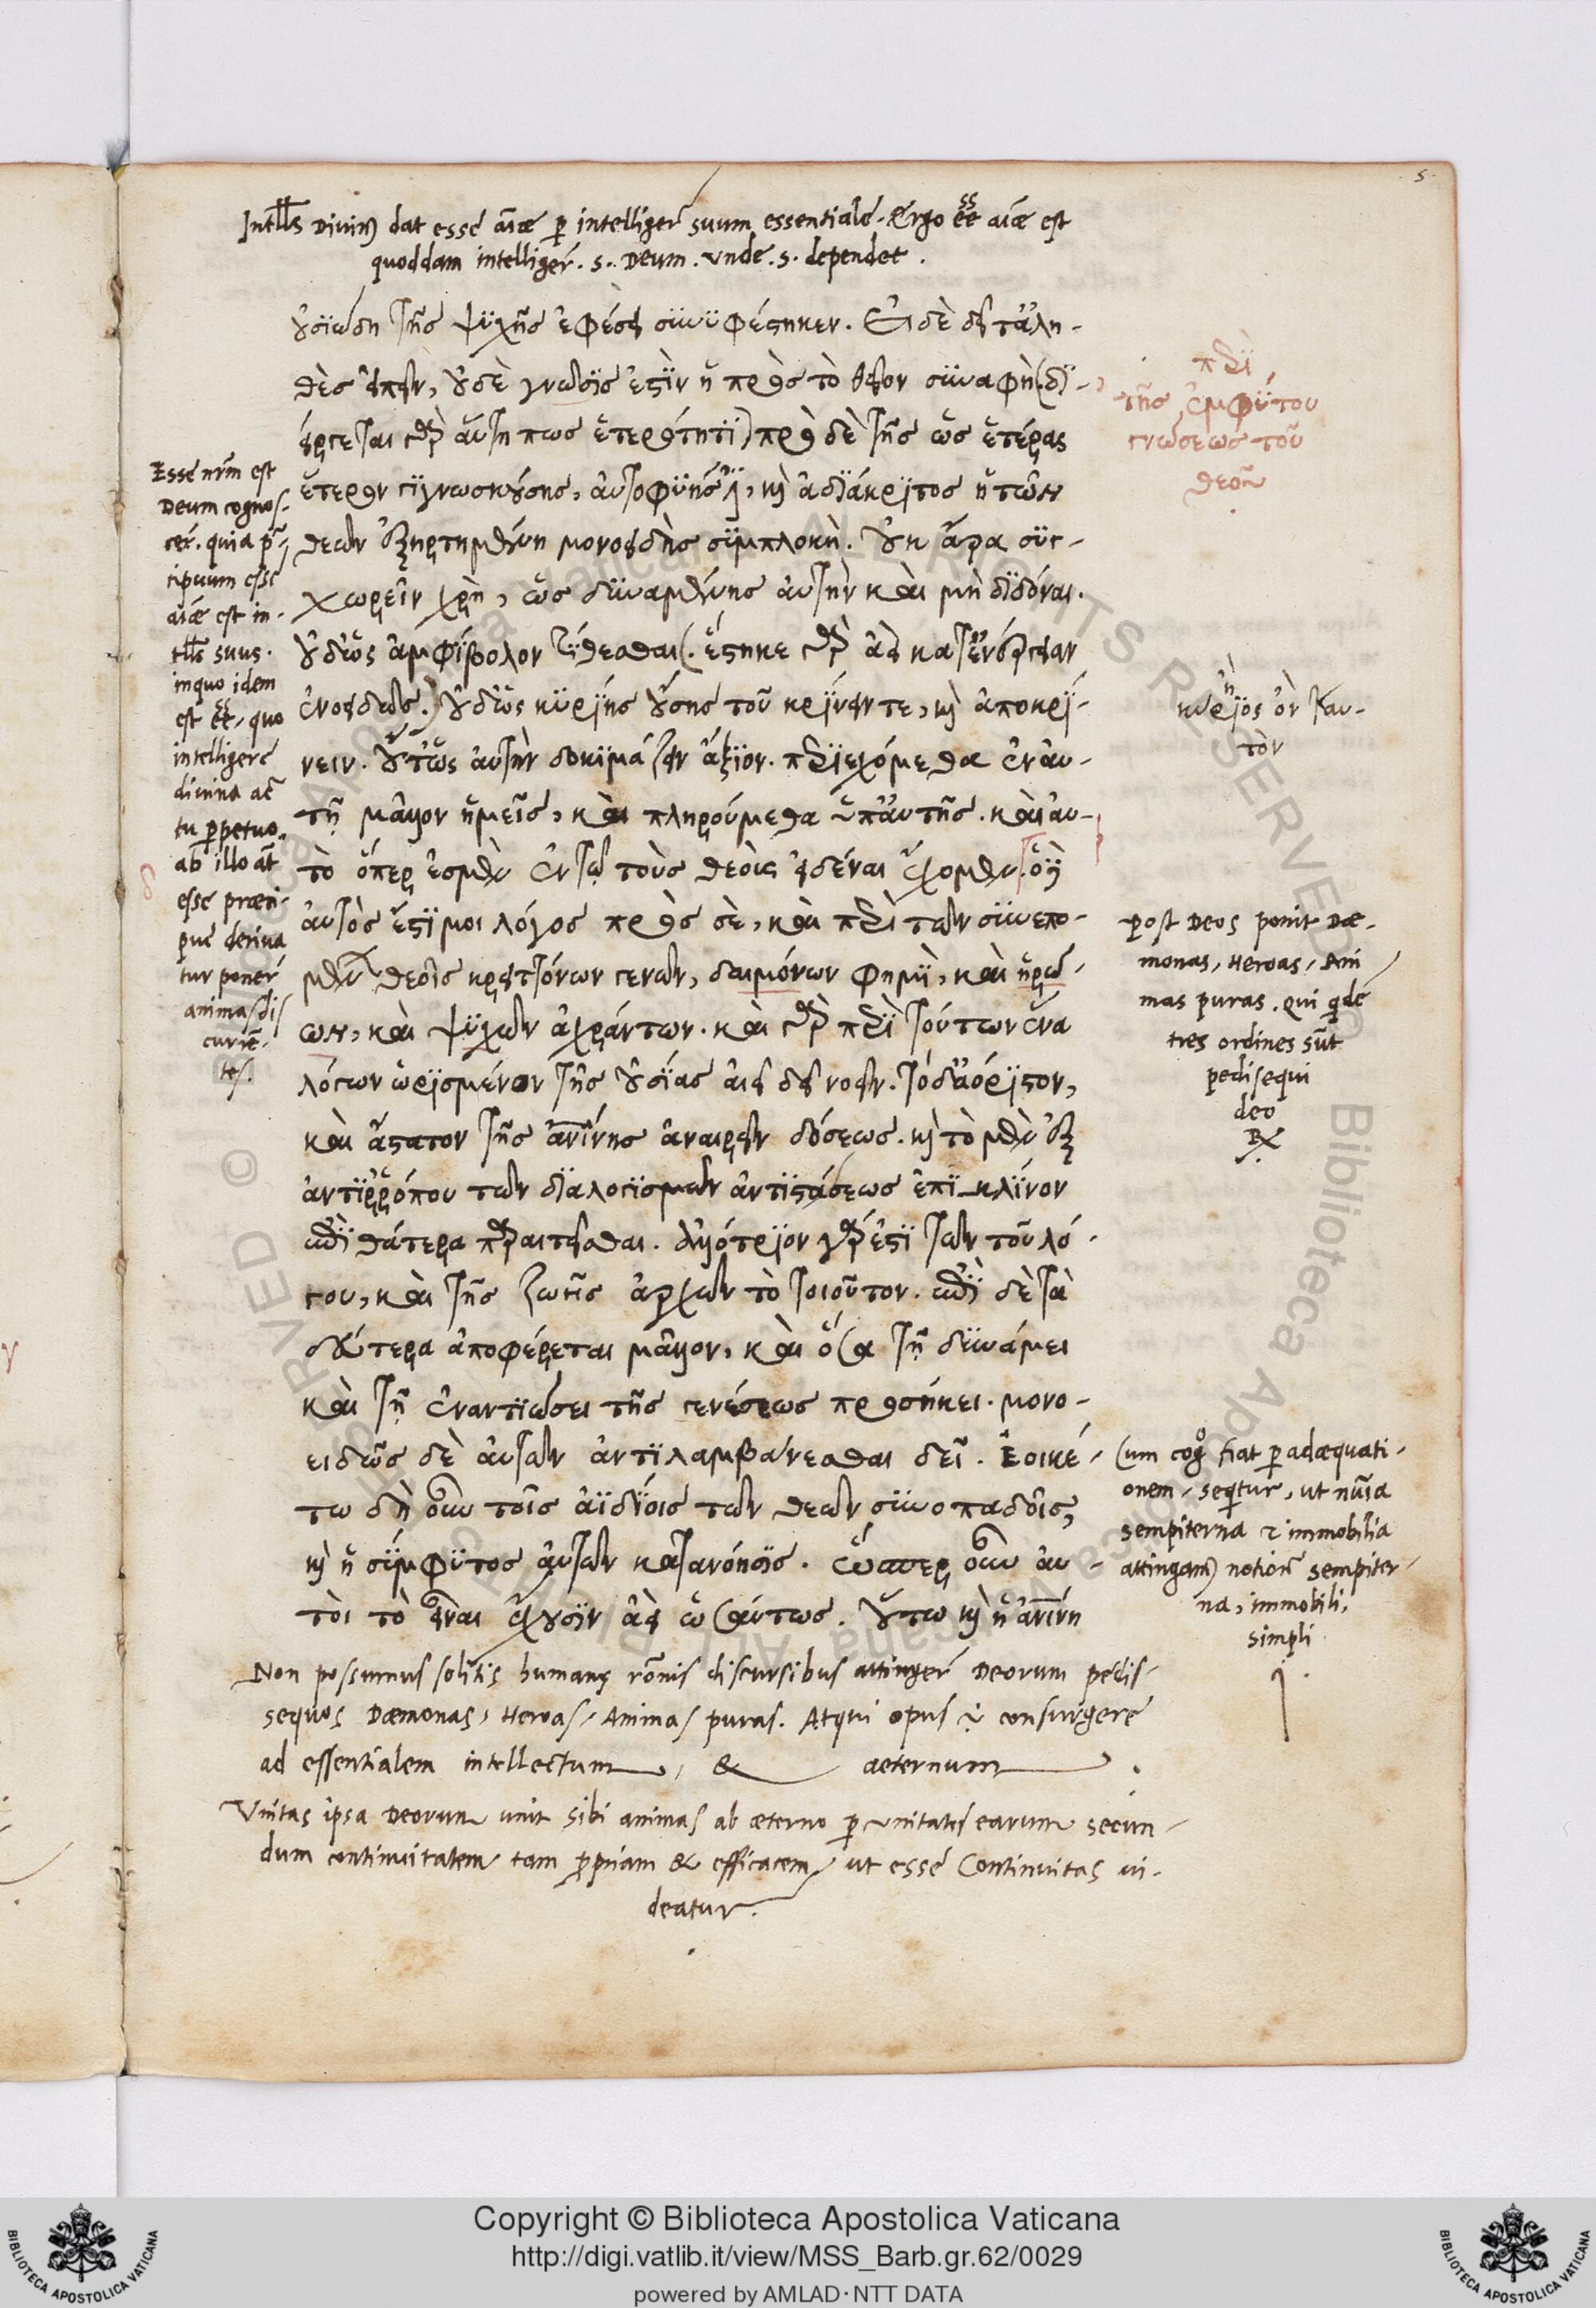 5.
Intlls Divinus dat esse aiæ p intelligere suum essentiale. Ergo ee aiæ est
quoddam intelligere. s. Deum. unde. s. dependet.
οὐσιώδη τῆς ψυχῆς ἐφέσει συνυφέστηκεν. Εἰ δὲ δεῖ τἀλη-
θὲς εἰπεῖν, οὐδὲ γνῶσίς ἐστιν ἡ πρὸς τὸ θεῖον συναφή. (δι-
είργεται γὰρ αὕτη πως ἑτερότητι) πρὸ δὲ τῆς ὡς ἑτέρας
ἕτερον γιγνωσκούσης, αὐτοφυής, καὶ ἀδιάκριτος ἡ τῶν
θεῶν ἐξηρτημένη μονοειδὴς συμπλοκή. οὐκ ἄρα συγ-
χωρεῖν χρή, ὡς δυναμένης αὐτὴν καὶ μὴ διδόναι.
οὐδ' ὡς ἀμφίβολον τίθεσθαι (ἕστηκε γὰρ ἀεὶ κατ' ἐνέργειαν
ἑνοειδῶς.) οὐδ' ὡς κυρίης οὔσης τοῦ κρίνειν τε, καὶ ἀποκρί-
νειν. οὕτως αὐτὴν δοκιμάζειν ἄξιον. περιεχόμεθα ἐν αὐ-
τῇ μᾶλλον ἡμεῖς, καὶ πληρούμεθα ὑπ' αὐτῆς. καὶ αὐ-
τὸ ὅπερ ἐσμὲν ἐν τῷ τοὺς θεοὺς εἰδέναι ἔχομεν. ὁ δ'
αὐτὸς ἔστι μοι λόγος πρὸς σὲ, καὶ περὶ τῶν συνεπο-
μένων θεοῖς κρειττόνων γενῶν, δαιμόνων φημὶ, καὶ ἡρώ-
ων, καὶ ψυχῶν ἀχράντων. καὶ γὰρ περὶ τούτων ἕνα
λόγον ὡρισμένον τῆς οὐσίας ἀεὶ δεῖ νοεῖν. τὸ δ' ἀόριστον,
καὶ ἄστατον τῆς ἀνίνης ἀναιρεῖν δόσεως. καὶ τὸ μὲν ἐξ
ἀντιρρόπου τῶν διαλογισμῶν ἀντιστάσεως ἐπικλίνον
ἐπὶ θάτερα παραιτεῖσθαι. ἀλλότριον γάρ ἐστι τῶν τοῦ λό-
γου, καὶ τῆς ζωῆς ἀρχῶν τὸ τοιοῦτον. ἐπὶ δὲ τὰ
δεύτερα ἀποφέρεται μᾶλλον, καὶ ὅσα τῇ δυνάμει
καὶ τῇ ἐναντιώσει τῆς γενέσεως προσήκει. μονο-
ειδῶς δὲ αὐτῶν ἀντιλαμβάνεσθαι δεῖ. Ἐοικέ-
τω δὴ οὖν τοῖς ἀϊδίοις τῶν θεῶν συνοπαδοῖς,
καὶ ἡ σύμφυτος αὐτῶν κατανόησις. ὥσπερ οὖν αὐ-
τοὶ τὸ εἶναι ἔχουσιν ἀεὶ ὡσαύτως. οὕτω καὶ ἡ ἀνίνη
Esse nrm est
Deum cognos-
cere. quia præ-
cipuum esse
aiæ est in-
tlls suus.
inquo idem
est ee, quo
intelligere
divina ac
tu perpetuo.
ab illo aut
esse præci-
pue deriva
tur ponere
animas dis
curren-
tes.
περὶ
τῆς ἐμφύτου
γνώσεως τοῦ
θεοῦ
post Deos ponit Dæ-
monas, Heroas, Ani
mas puras. qui quidem
tres ordines sunt
pedisequi
deo
Cum cog fiat p adæquati-
onem, sequitur, ut numina
sempiterna & immobilia
attingamus notione sempiter-
na, immobili,
simpli
Non possumus solitis humanæ rõnis discursibus attingere Deorum pedis-
sequos Dæmonas, Heroas, Animas puras. Atqui opus est consurgere
ad essentialem intellectum, & aeternum.
Unitas ipsa Deorum unit sibi animas ab æterno p unitates earum secun-
dum continuitatem tam propriam & efficacem, ut esse Continuitas vi-
deatur.
Copyright © Biblioteca Apostolica Vaticana
http://digi.vatlib.it/view/MSS_Barb.gr.62/0029
powered by AMLAD·NTT DATA